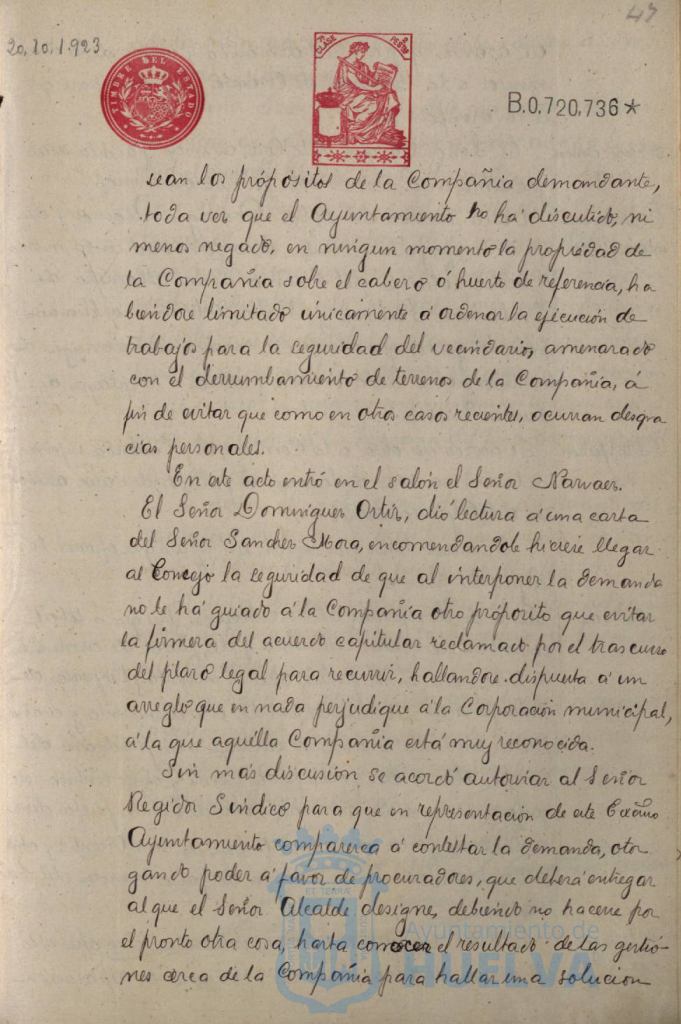 47
20,10,1.923
TIMBRE DEL ESTADO
7ª CLASE PESETAS
B.0,720,736*
sean los própósitos de la Compañia demandante,
toda vez que el Ayuntamiento no há discutido, ni
menos negado, en ningun momento la propiedad de
la Compañia sobre el cabezo ó huerto de referencia, ha
biendose limitado únicamente á ordenar la ejecución de
trabajos para la seguridad del vecindario, amenazado
con el derrumbamiento de terrenos de la Compañia, á
fin de evitar que como en otros casos recientes, ocurran desgra
cias personales.
En este acto entró en el salón el Señor Narvaez.
El Señor Dominguez Ortiz, dió lectura á una carta
del Señor Sanchez Mora, encomendandole hiciese llegar
al Concejo la seguridad de que al interponer la demanda
no le há guiado á la Compañia otro própósito que evitar
la firmeza del acuerdo capitular reclamado por el trascurso
del plazo legal para recurrir, hallandose dispuesta á un
arreglo que en nada perjudique á la Corporación municipal,
á la que aquélla Compañia está muy reconocida.
Sin más discusion se acordó autorizar al Señor
Regidor Sindico para que en representación de este Excmo
Ayuntamiento comparezca á contestar la demanda, otor
gando poder á favor de procuradores, que deberá entregar
al que el Señor Alcalde designe, debiendo no hacerse por
el pronto otra cosa, hasta conocer el resultado de las gestio-
nes cerca de la Compañia para hallar una solucion
Ayuntamiento de
HUELVA